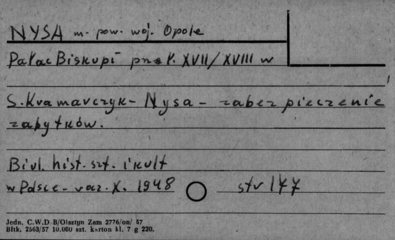 NYSA m. pow. woj. Opole
Pałac Biskupi przeł. XVII/XVIII w
S. Kramarczyk - Nysa - zabezpieczenie
zabytków.
Biul. hist. szt. i kult
w Polsce - roz. X. 1948 str 177
Jedn. C.W.D-B/Olsztyn Zam 2776/on/ 57
Bltk. 2563/57 10.000 szt. karton kl. 7 g 220.